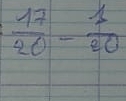 17/20 - 1/20